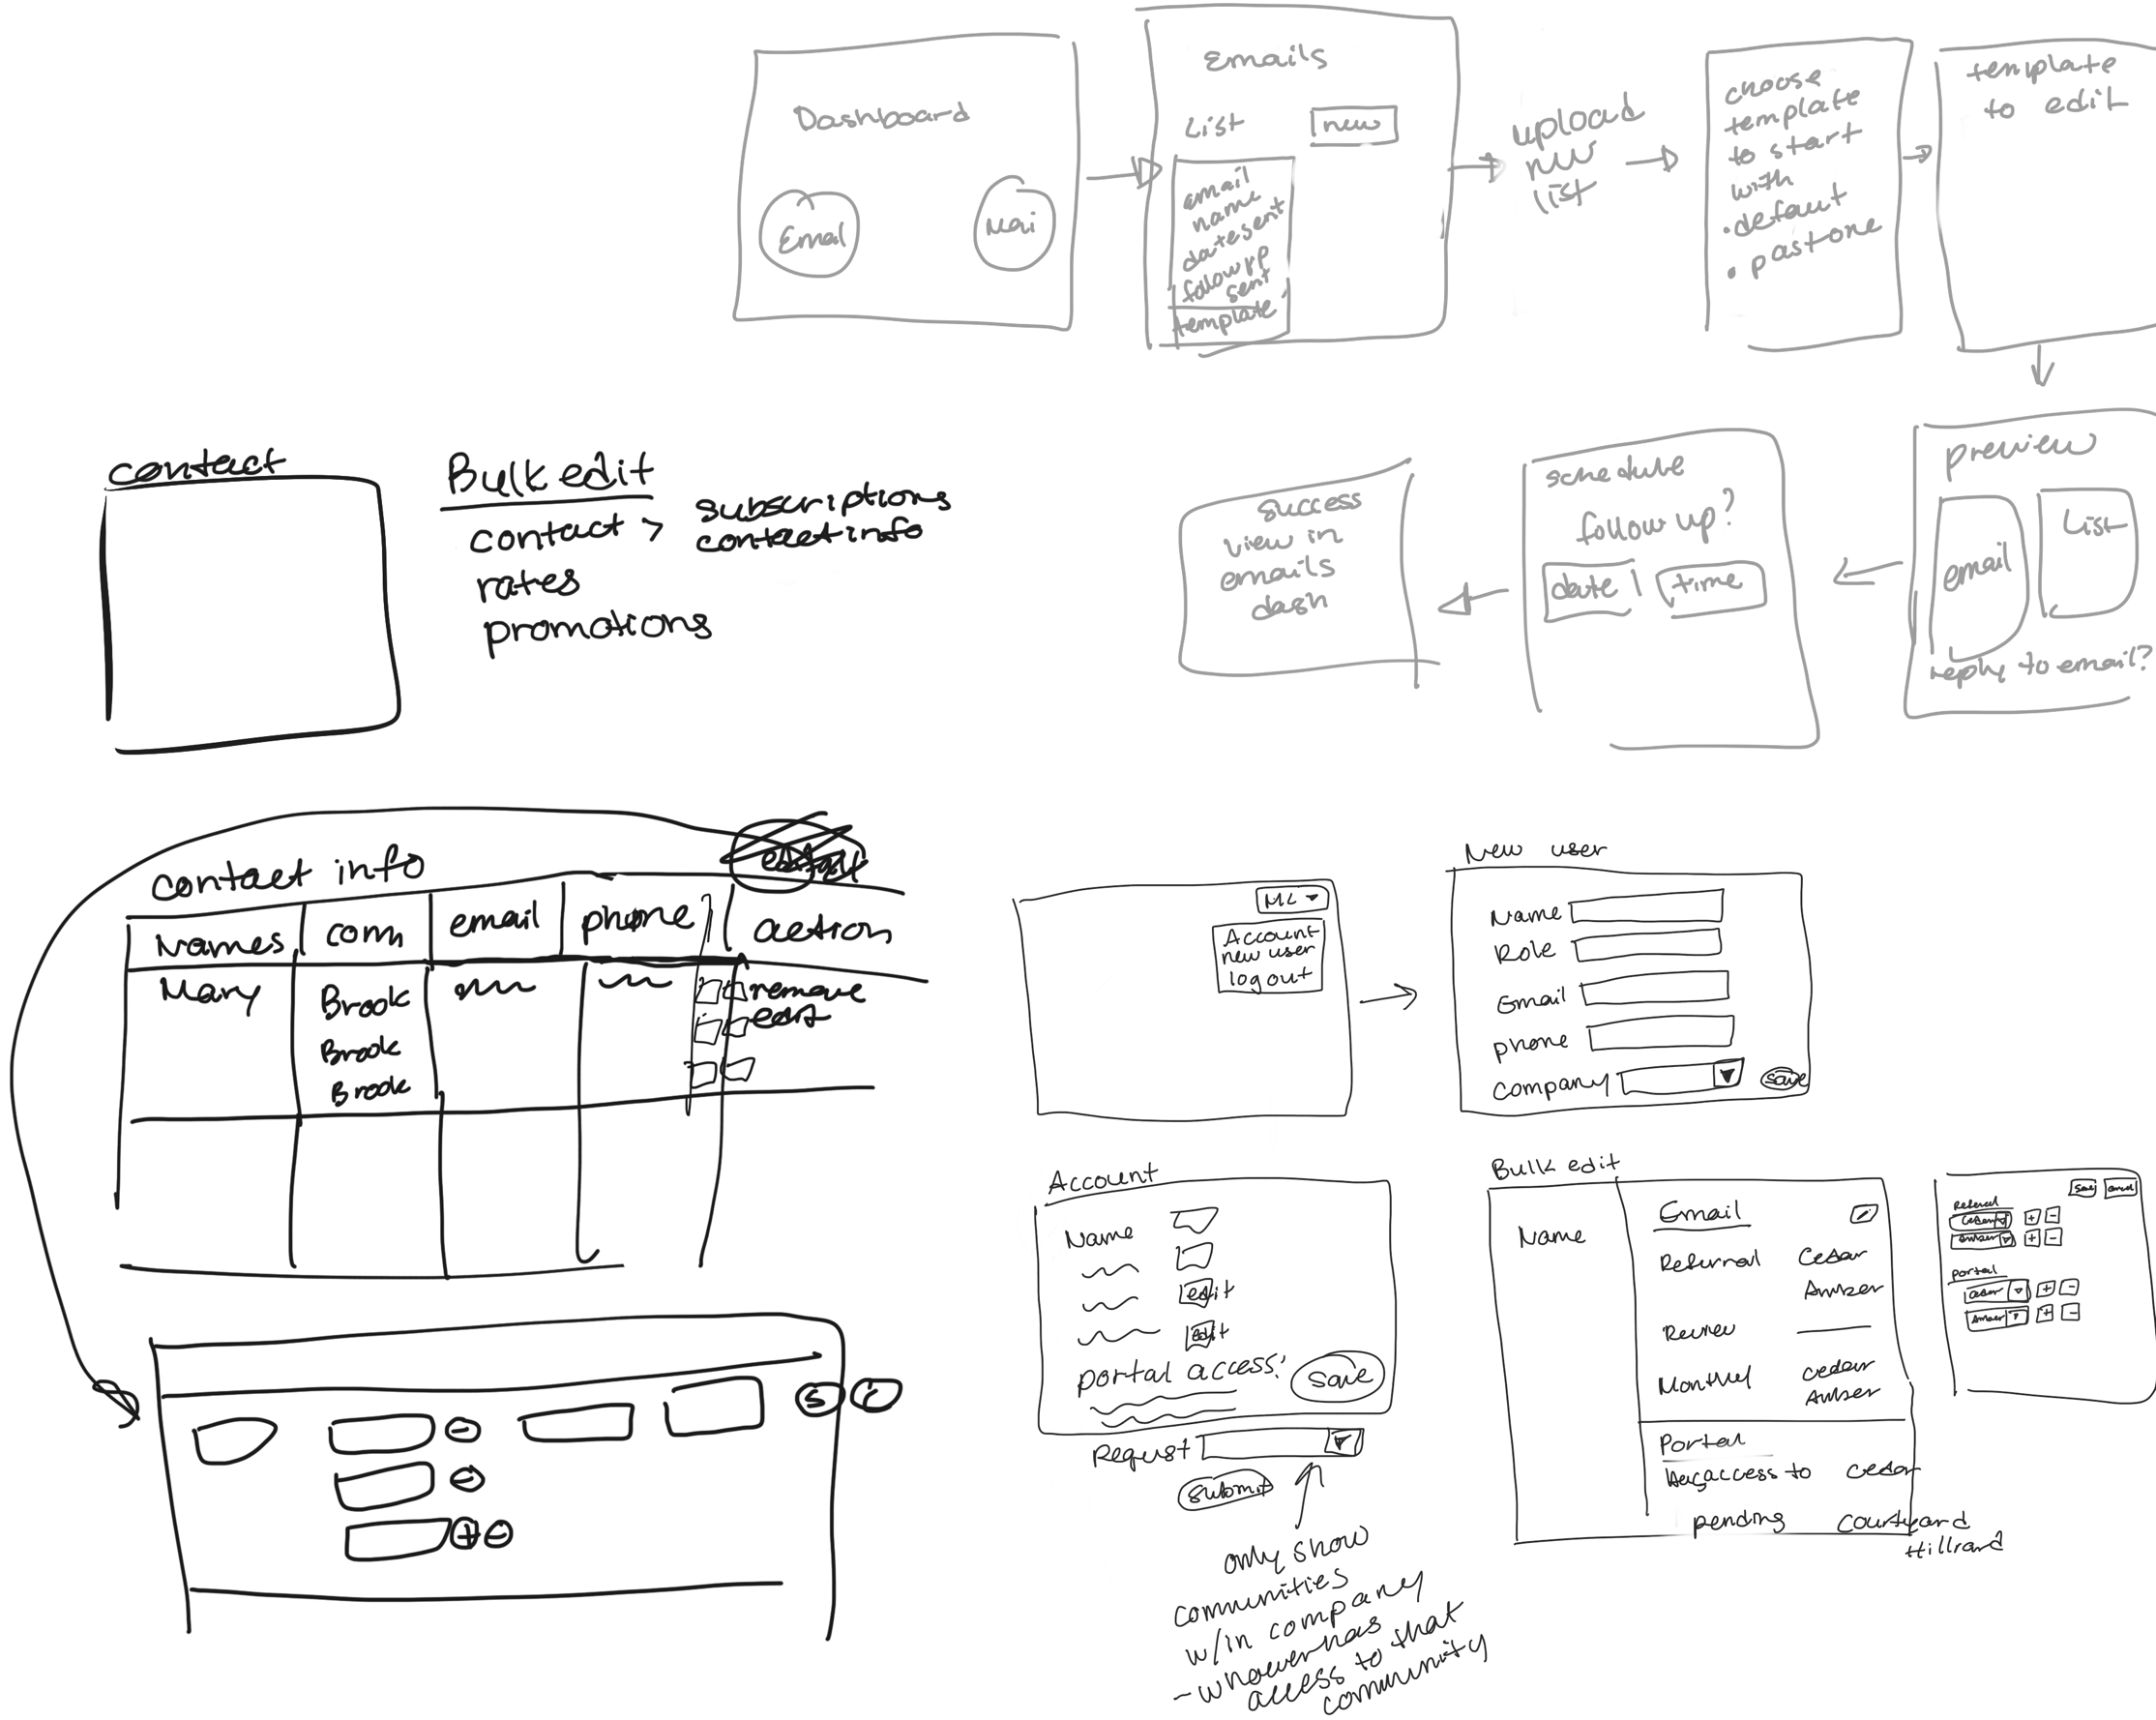 Dashboard
Email
Mai
Emails
List
new
email
name
date sent
follow up
sent
template
upload
new
list
choose
template
to start
with
• defaut
• past one
template
to edit
preview
email
List
reply to email?
schedule
follow up?
date
time
success
view in
emails
dash
contact
Bulk edit
contact > subscriptions
contact info
rates
promotions
contact info
Names
com
email
phone
action
Mary
Brook
Brook
Brook
remove
edit
S
C
ML
Account
new user
log out
New user
Name
Role
Email
phone
company
save
Account
Name
edit
edit
portal access:
save
Request
submit
only show
communities
w/in company
- whoever has
access to that
community
Bulk edit
Name
Email
Referral Cedar
Amber
Review
Monthly cedar
Amber
Portal
access to cedar
pending courtyard
Hillrard
save
cancel
Referral
Cedar
+ -
Amber
+ -
portal
+ -
Amber
+ -